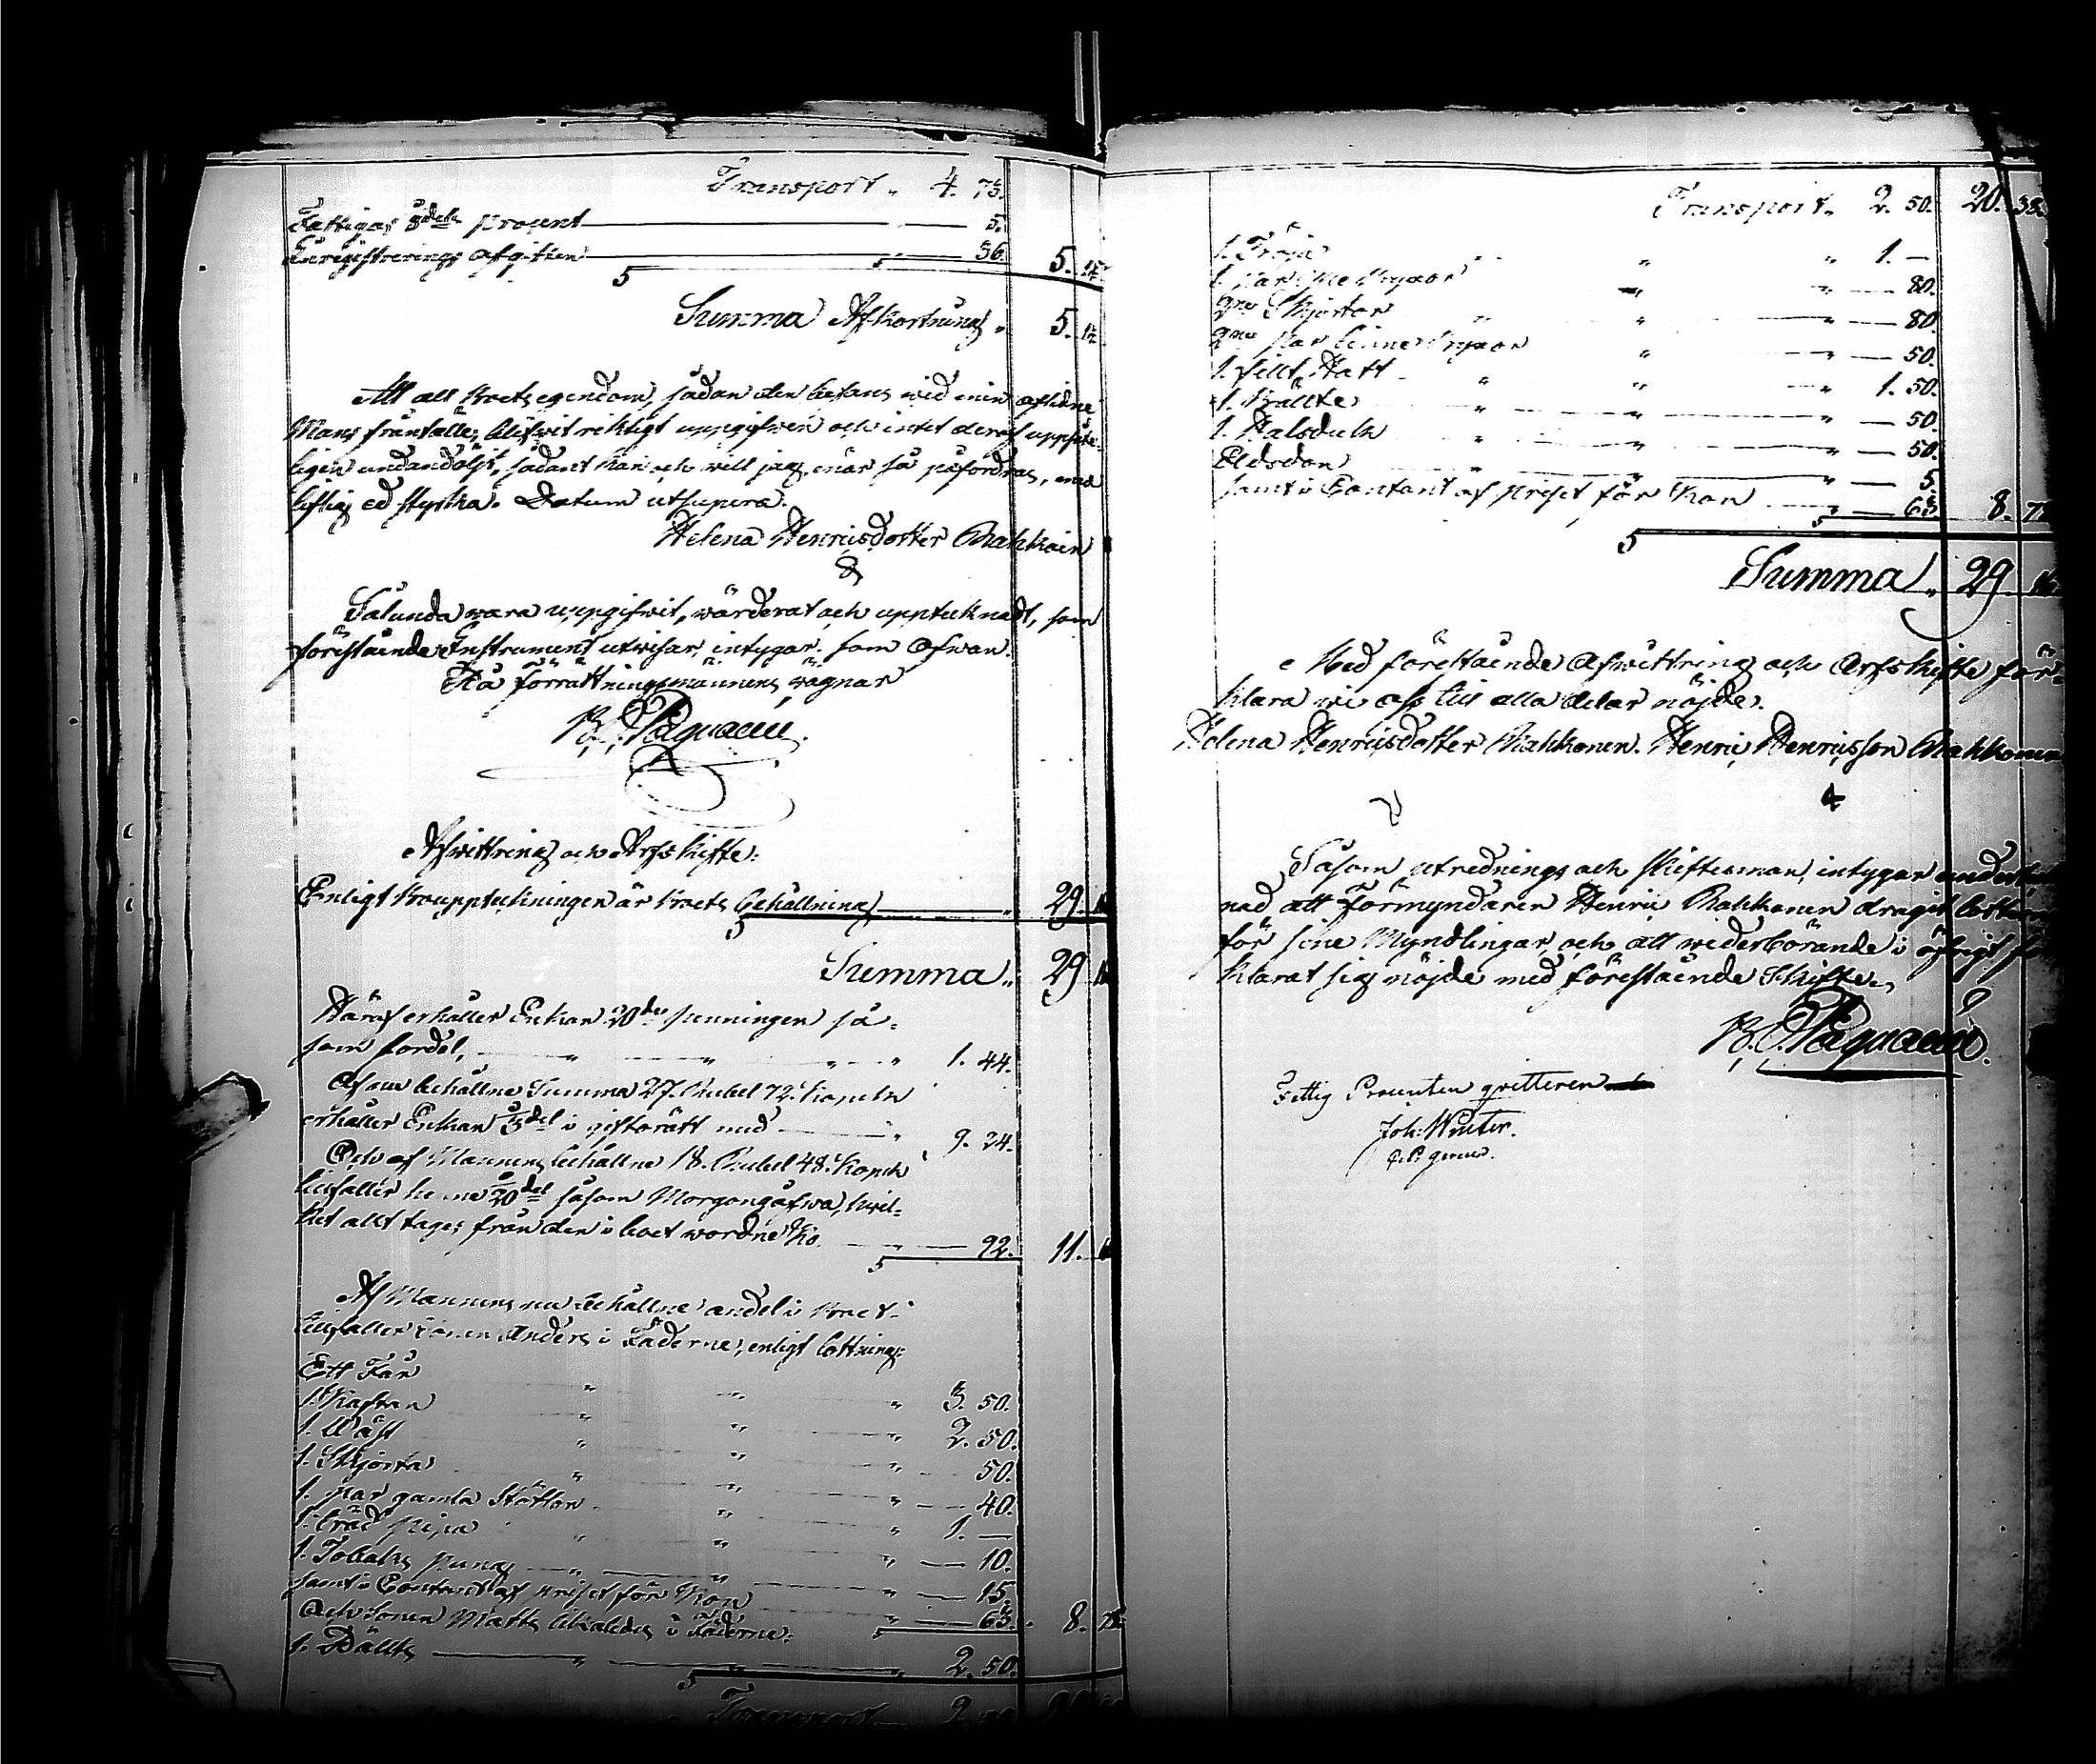 Transport „ 4. 75.
Fattigas 8dels procent 5.
Inregistrerings afgiften 36. 5. 17.
Summa Afkortning „ 5. 17.
Att all Boets egendom, sådan den befans wid min aflidne
Mans frånfälle, blifwit riktigt uppgifwen och intet deraf uppsåte-
ligen undandöljt, sådant kan och will jag, när så påfordras, med
liflig ed styrka. Datum utsupera.
Helena Henricsdotter
Sålunda wara uppgifwit, wärderat och upptecknadt, som
förestående Instrument utwisar, intygar som ofwan.
På förrättningsmannens wägnar
Afwittring och Arfskifte:
Enligt Bouppteckningen är Boets behållning 29.
Summa „ 29
Häraf erhåller Enkan 20de penningen så-
som fördel, 1. 44.
Af om behållne Summa 27. Rubel 72. Kopek
erhåller Enkan ⅓del i giftorätt med 9. 24.
Och af Mannens behållne 18. Rubel 48. Kopek
tillfaller henne 20del såsom Morgongåfwa, hwil-
ket allt tages från den i boet wordne Ko 92. 11.
Af Mannens nu behållne andel i Boet
tillfaller sonen Anders i Fäderne, enligt lottning:
Ett Får 3. 50.
1. Kaftan 2. 50.
1. Wäst 50.
1. Skjorta 40.
1. par gamla Stöflor 1. —
1. träd pipa 10.
1. Tobaks pung 15.
samt i Contant af priset för Kon 63. 8. 78.
Och Sonen Matts likaledes i Fäderne:
1. Bälte 2. 50.
Transport
Transport „ 2. 50. 20. 38.
1. Tröja 1. —
1. par 80.
2ne Skjortor 80.
2ne par linne byxor 50.
1. filt Hatt 1. 50.
1. Bälte 50.
1. Halsduk 50.
Eldsdon 5.
samt i Contant af priset för Kon 63. 8. 78
Summa „ 29
Med förestående Afwittring och Arfskifte för-
klara wi oss till alla delar nöjde.
Helena Henricsdotter Henric Henricsson
Såsom utrednings och skiftesman, intygar
nad att Förmyndaren Henric dragit
för sine Myndlingar, och att wederbörande i öfrigt
klarat sig nöjde med förestående Skifte.
Fattig Procenten qvitteren
Joh: Winter.